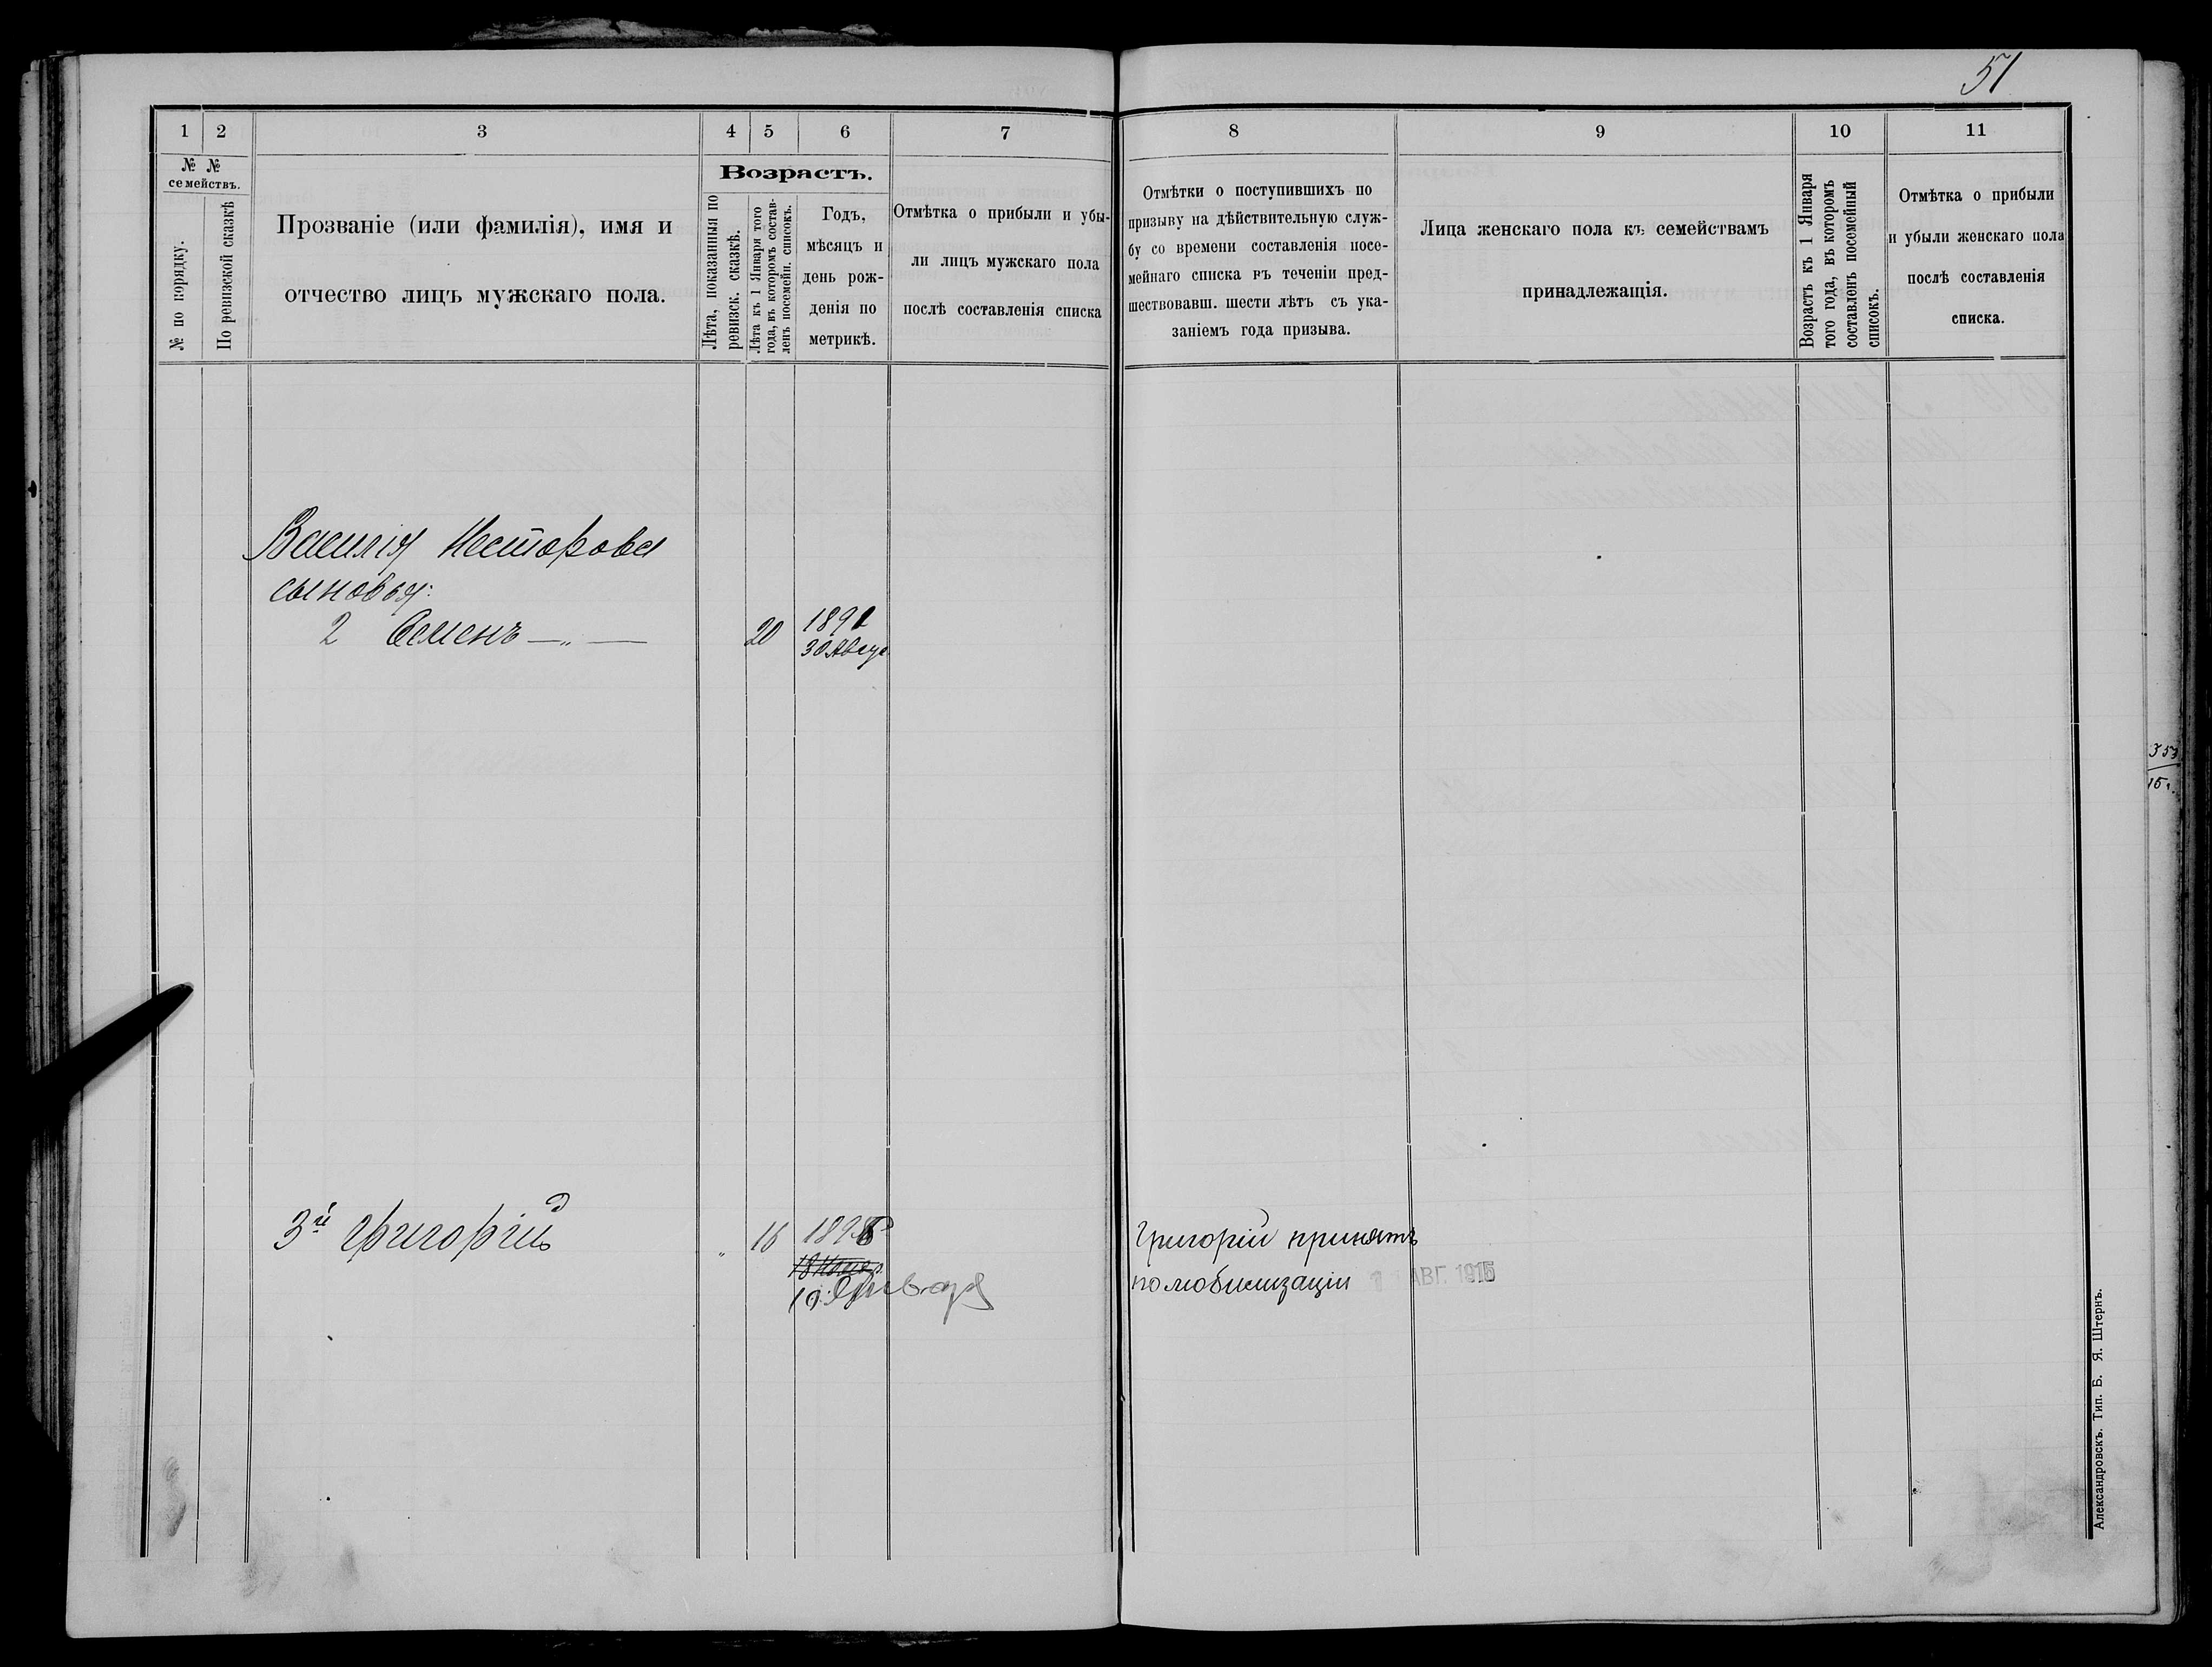 51
1
2
3
4
5
6
7
8
9
10
11
№ №
семействъ.
№ по порядку.
По ревизской сказкѣ
Прозваніе (или фамилія), имя и
отчество лицъ мужскаго пола.
Возрастъ.
Лѣта, показанныя по
ревизск. сказкѣ.
Лѣта къ 1 Января того
года, въ которомъ состав-
ленъ посемейн. списокъ.
Годъ,
мѣсяцъ и
день рож-
денія по
метрикѣ.
Отмѣтка о прибыли и убы-
ли лицъ мужскаго пола
послѣ составленія списка
Отмѣтки о поступившихъ по
призыву на дѣйствительную служ-
бу со времени составленія посе-
мейнаго списка въ теченіи пред-
шествовавш. шести лѣтъ съ ука-
заніемъ года призыва.
Лица женскаго пола къ семействамъ
принадлежащія.
Возрастъ къ 1 Января
того года, въ которомъ
составленъ посемейный
списокъ.
Отмѣтка о прибыли
и убыли женскаго пола
послѣ составленія
списка.
Василія Несторова
сыновья:
2 Семенъ —„— 20 1891
30 Авгус
353
15 г.
3й Григорій „ 16 1896
19 Января
Григорій принятъ
по мобилизаціи АВГ. 1915
Александровскъ. Тип. Б. Я. Штернъ.